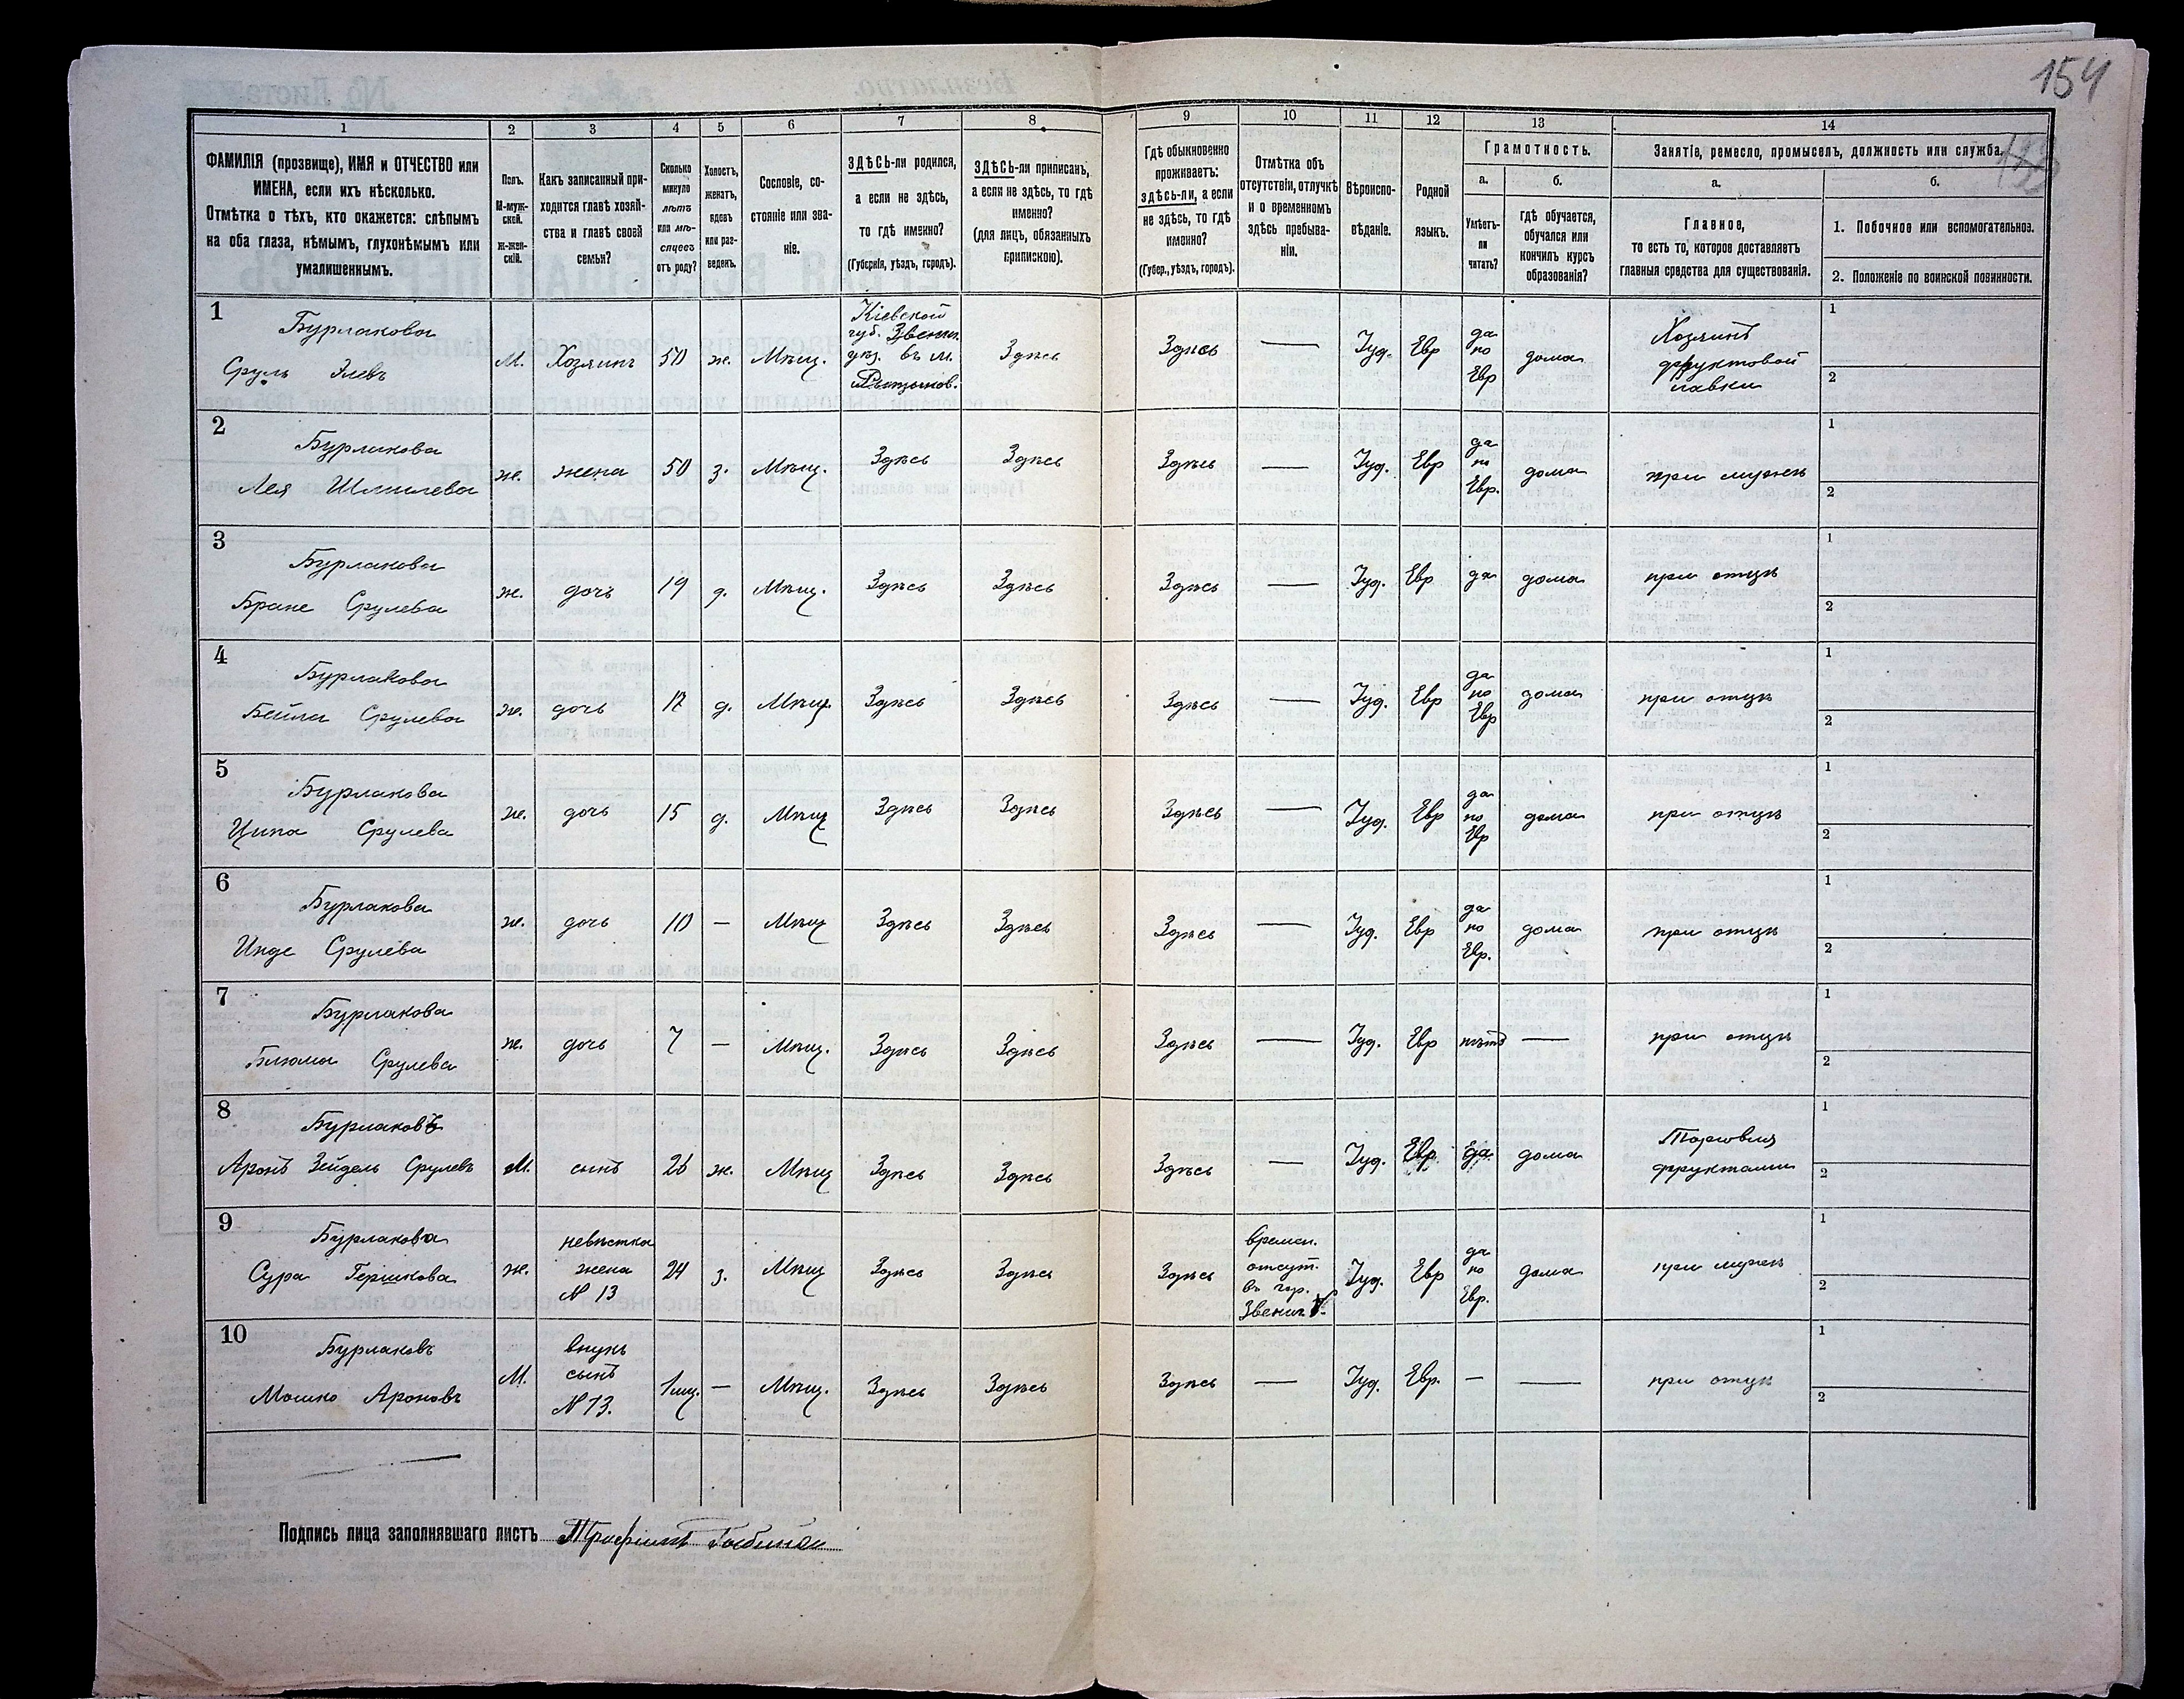 154
1 2 3 4 5 6 7 8 9 10 11 12 13 14
ФАМИЛІЯ (прозвище), ИМЯ и ОТЧЕСТВО или
ИМЕНА, если ихъ нѣсколько.
Отмѣтка о тѣхъ, кто окажется: слѣпымъ
на оба глаза, нѣмымъ, глухонѣмымъ или
умалишеннымъ.
Полъ.
М-муж-
ской.
ж-жен-
скій.
Какъ записанный при-
ходится главѣ хозяй-
ства и главѣ своей
семьи?
Сколько
минуло
лѣтъ
или мѣ-
сяцевъ
отъ роду?
Холостъ,
женатъ,
вдовъ
или раз-
веденъ.
Сословіе, со-
стояніе или зва-
ніе.
ЗДѢСЬ-ли родился,
а если не здѣсь,
то гдѣ именно?
(Губернія, уѣздъ, городъ).
ЗДѢСЬ-ли приписан,
а если не здѣсь, то гдѣ
именно?
(для лицъ, обязанныхъ
припискою).
Гдѣ обыкновенно
проживаетъ:
здѣсь-ли, а если
не здѣсь, то гдѣ
именно?
(Губер., уѣздъ, городъ).
Отмѣтка объ
отсутствіи, отлучкѣ
и о временномъ
здѣсь пребыва-
ніи.
Вѣроиспо-
вѣданіе.
Родной
языкъ.
Грамотность.
а.
Умѣетъ-
ли
читать?
б.
гдѣ обучается,
обучался или
кончилъ курсъ
образованія?
Занятіе, ремесло, промыселъ, должность или служба.
а.
Главное,
то есть то, которое доставляетъ
главныя средства для существованія.
б.
1. Побочное или вспомогательное.
2. Положеніе по воинской повинности.
1
Бурлаковъ
Сруль Элевъ
М.
Хозяинъ
50
ж.
Мѣщ.
Кіевской
губ. Звениг.
уѣз. въ м.
Здѣсь
Здѣсь
—
Іуд.
Евр
да
по
Евр
дома
Хозяинъ
фруктовой
лавки
1
2
2
Бурлакова
Лея Шмилева
ж.
жена
50
з.
Мѣщ.
Здѣсь
Здѣсь
Здѣсь
—
Іуд.
Евр
да
по
Евр.
дома
при мужѣ
1
2
3
Бурлакова
Бране Срулева
ж.
дочь
19
д.
Мѣщ.
Здѣсь
Здѣсь
Здѣсь
—
Іуд.
Евр
да
дома
при отцѣ
1
2
4
Бурлакова
Бейла Срулева
ж.
дочь
17
д.
Мѣщ
Здѣсь
Здѣсь
Здѣсь
—
Іуд.
Евр
да
по
Евр
дома
при отцѣ
1
2
5
Бурлакова
Ципа Срулева
ж.
дочь
15
д.
Мѣщ
Здѣсь
Здѣсь
Здѣсь
—
Іуд.
Евр
да
по
Евр
дома
при отцѣ
1
2
6
Бурлакова
Инде Срулева
ж.
дочь
10
—
Мѣщ
Здѣсь
Здѣсь
Здѣсь
—
Іуд.
Евр
да
по
Евр.
дома
при отцѣ
1
2
7
Бурлакова
Блюма Срулева
ж.
дочь
7
—
Мѣщ.
Здѣсь
Здѣсь
Здѣсь
—
Іуд.
Евр
нѣтъ
—
при отцѣ
1
2
8
Бурлаковъ
Аронъ Зейдель Срулевъ
М.
сынъ
26
ж.
Мѣщ
Здѣсь
Здѣсь
Здѣсь
—
Іуд.
Евр.
да
дома
Торговля
фруктами
1
2
9
Бурлакова
Сура Гершкова
ж.
невѣстка
жена
№ 13
24
з.
Мѣщ
Здѣсь
Здѣсь
Здѣсь
времен.
отсут.
въ гор.
Звениг.
Іуд.
Евр
да
по
Евр.
дома
при мужѣ
1
2
10
Бурлаковъ
Мошко Ароновъ
М.
внукъ
сынъ
№ 13.
1 мц.
—
Мѣщ.
Здѣсь
Здѣсь
Здѣсь
—
Іуд.
Евр.
—
—
при отцѣ
1
2
Подпись лица заполнявшаго листъ Трофимъ